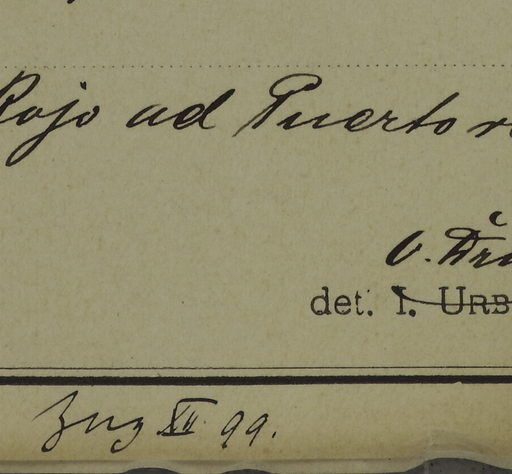 Rojo ad Puerto
det. I. URB
Zug XII 99.